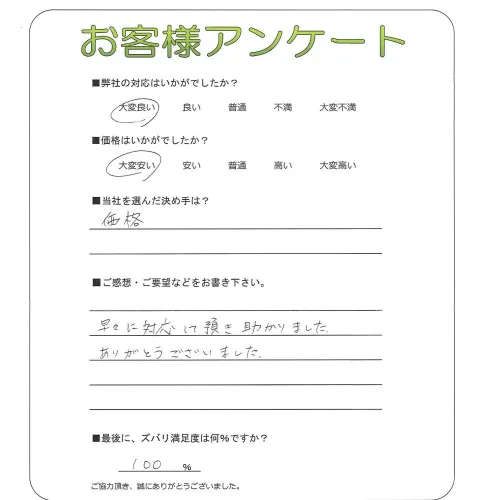 お客様アンケート
■弊社の対応はいかがでしたか？
大変良い 良い 普通 不満 大変不満
■価格はいかがでしたか？
大変安い 安い 普通 高い 大変高い
■当社を選んだ決め手は？
価格
■ご感想・ご要望などをお書き下さい。
早々に対応して頂き助かりました。
ありがとうございました。
■最後に、ズバリ満足度は何%ですか？
100 %
ご協力頂き、誠にありがとうございました。